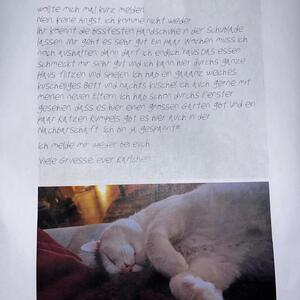 wollte mich mal kurz melden.
Nein, keine Angst, ich komme nicht wieder.
Ihr könnt die bissfesten Handschuhe in der Schublade
lassen. Mir geht es sehr gut. Ein paar Wochen muss ich
noch aushalten, dann darf ich endlich raus. Das Essen
schmeckt mir sehr gut und ich kann hier durchs ganze
Haus flitzen und spielen. Ich hab ein gaaanz weiches
kuscheliges Bett und nachts kuschel ich auch gerne mit
meinen neuen Eltern. Ich hab schon durchs Fenster
gesehen, dass es hier einen grossen Garten gibt und ein
paar Katzen Kumpels gibt es hier auch in der
Nachbarschaft. Ich bin ja gespannt!!!
Ich melde mich wieder bei euch.
Viele Gruesse, euer Karlchen